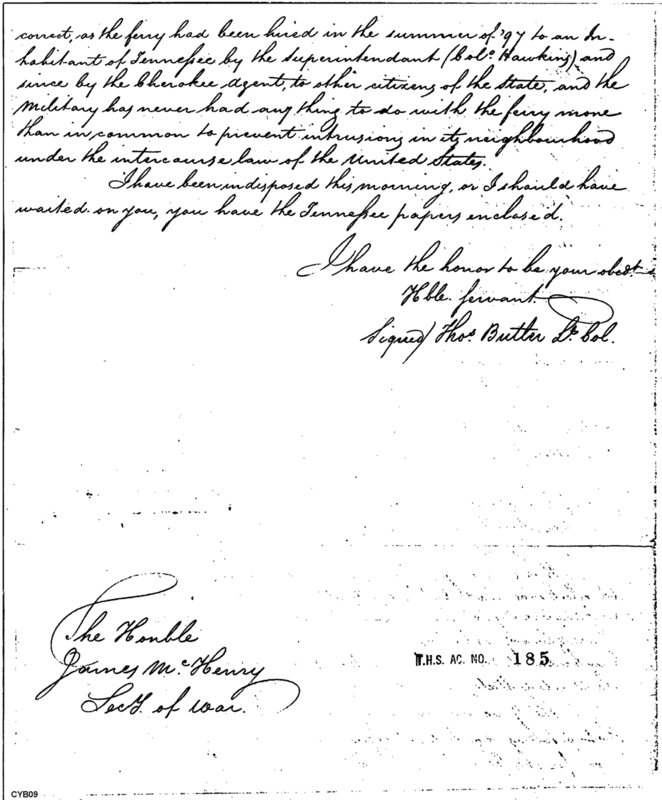 correct, as the ferry had been hired in the summer of '97 to an In-
habitant of Tennessee by the Superintendant (Colo. Hawkins) and
since by the Cherokee Agent, to other citizens of the State, and the
Military has never had any thing to do with the ferry more
than in common to prevent intrusions in its neighbourhood
under the intercourse law of the United States.
I have been indisposed this morning, or I should have
waited on you, you have the Tennessee papers enclosed.
I have the honor to be your obedt
Hble. servant
Signed) Thos. Butler Lt. Col.
The Honble
James McHenry
Secy. of War.
T.H.S. AC. NO. 185
CYB09